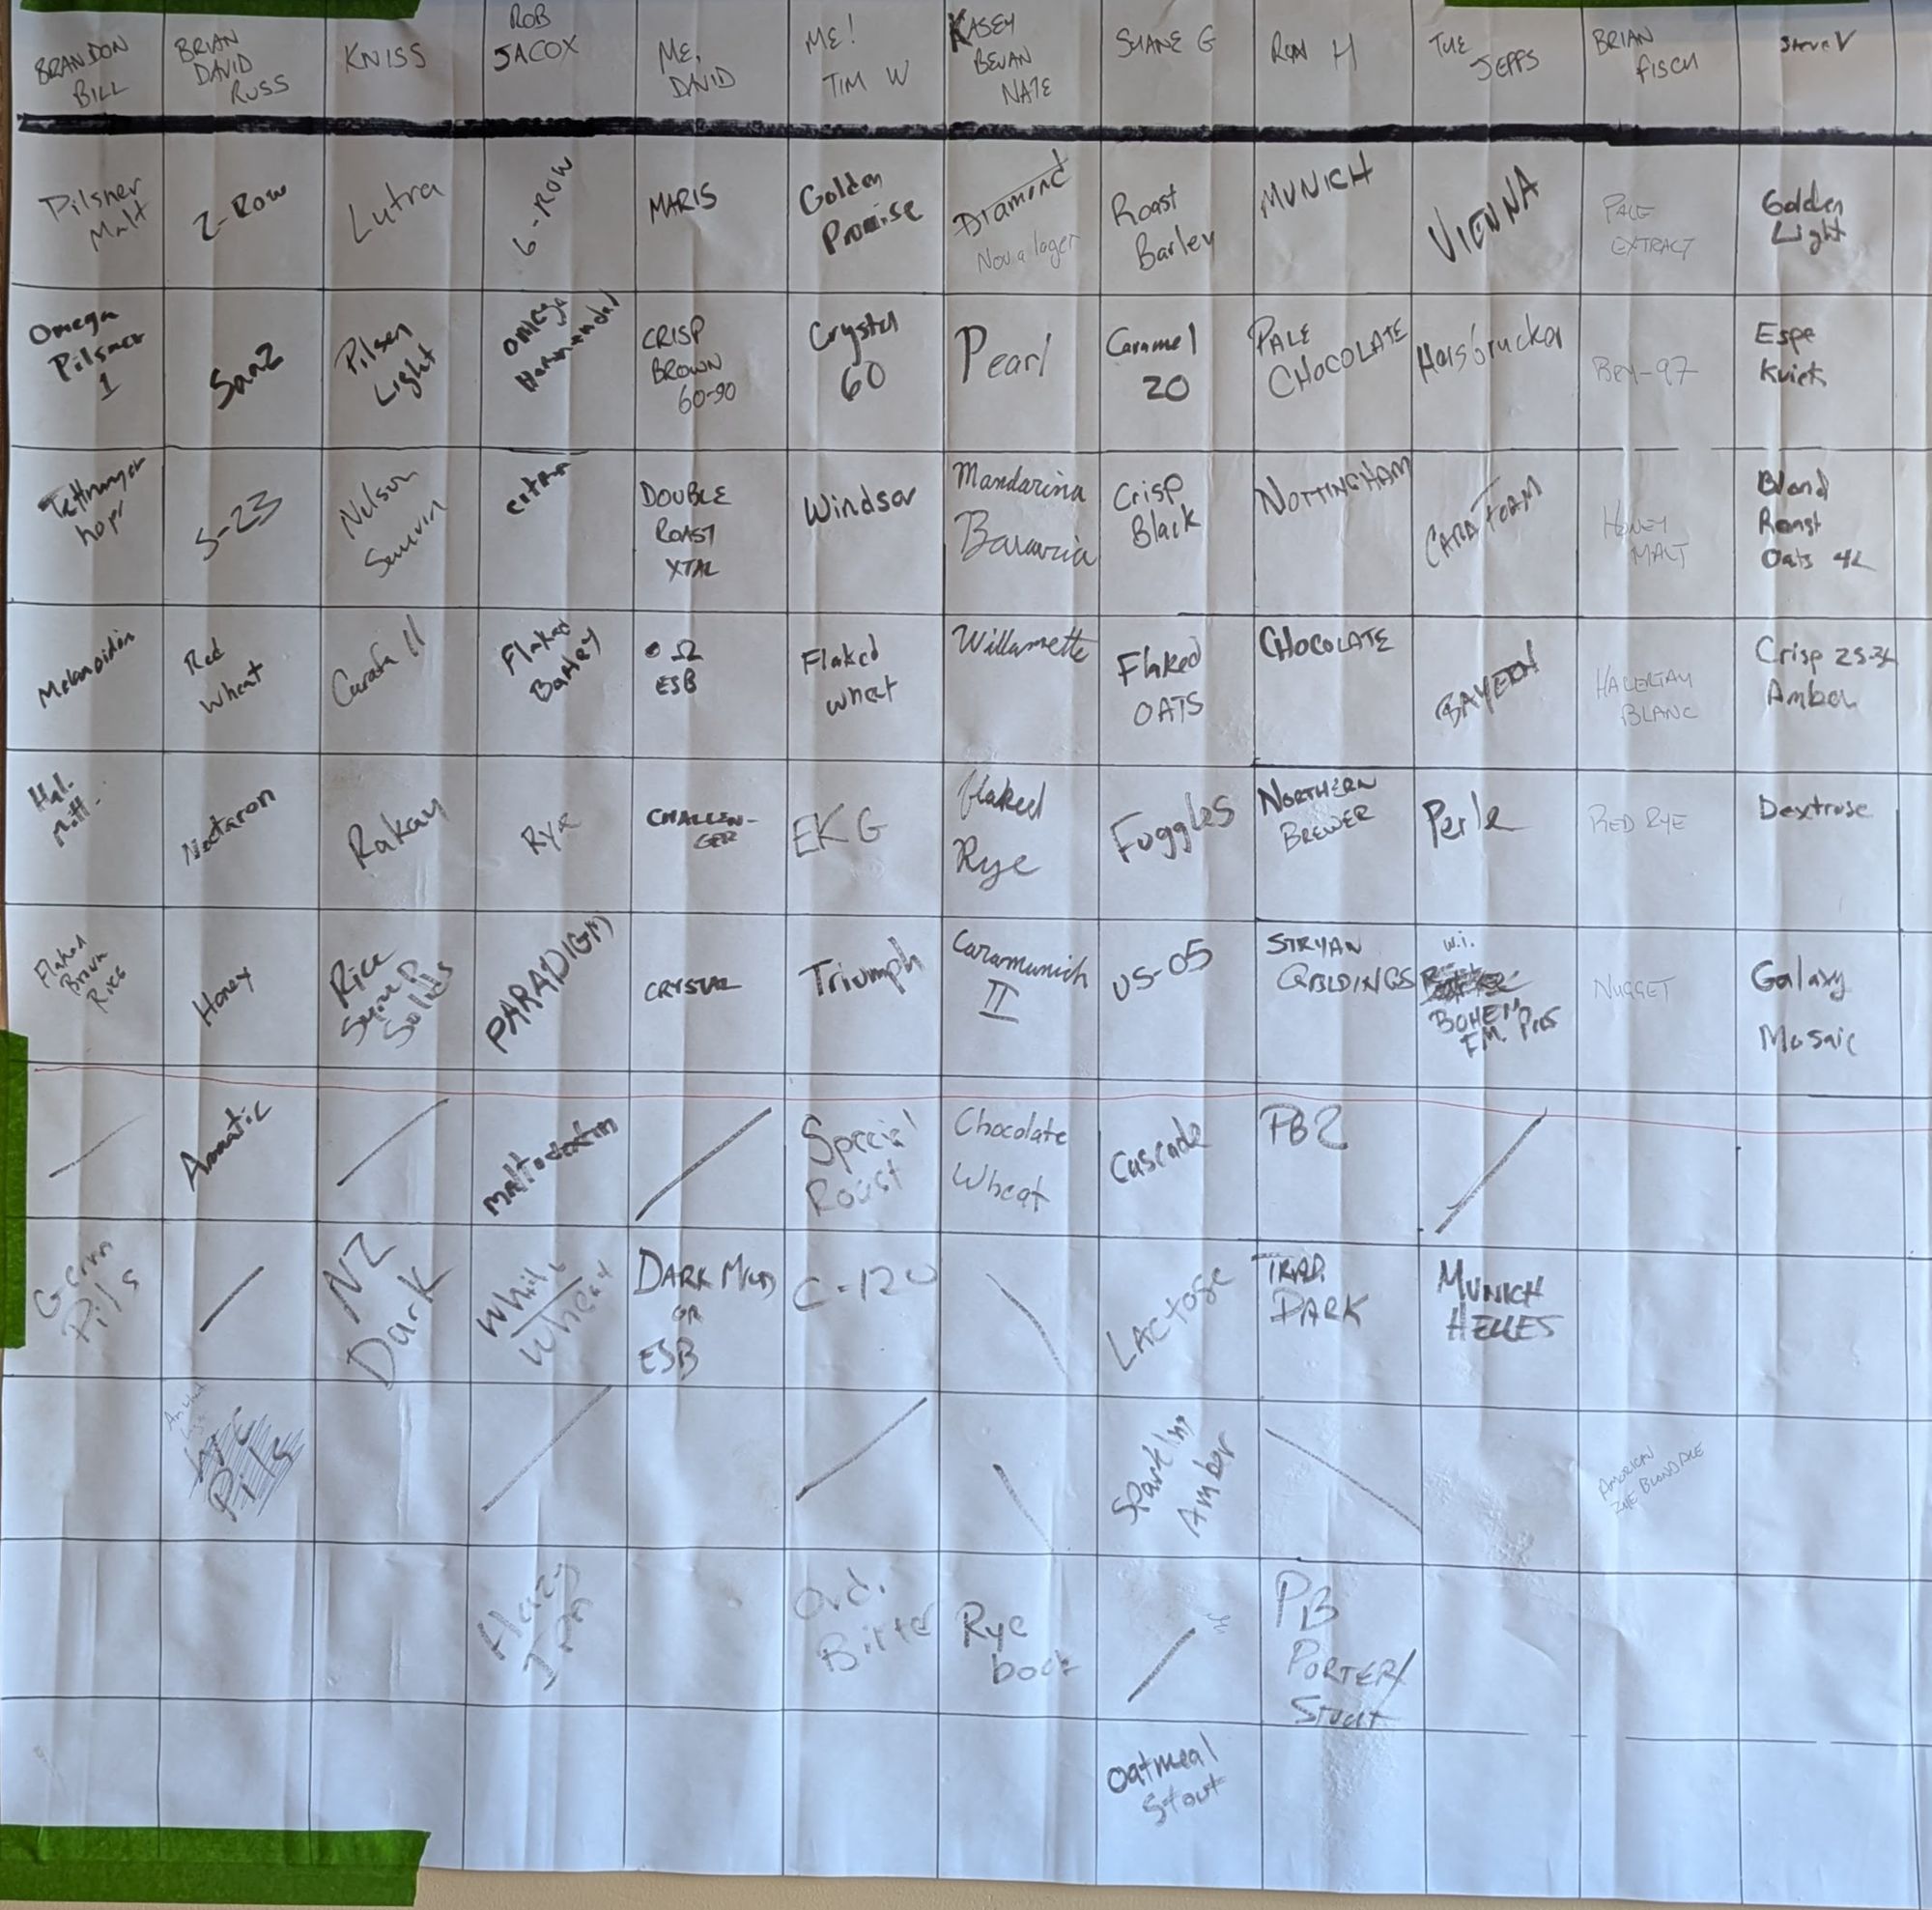 BRANDON
BILL
BRIAN
DAVID
RUSS
KNISS
ROB
JACOX
ME,
DAVID
ME!
TIM W
KASEY
BEVAN
NATE
SHANE G
RON H
THE
JEFFS
BRIAN
FISCH
Steve V
Pilsner
Malt
2-Row
Lutra
6-ROW
MARIS
Golden
Promise
Diamond
Nova lager
Roast
Barley
MUNICH
VIENNA
PALE
EXTRACT
Golden
Light
Omega
Pilsner
1
Saaz
Pilsen
Light
Omega
CRISP
BROWN
60-90
Crystal
60
Pearl
Caramel
20
PALE
CHOCOLATE
Hersbrucker
BRY-97
Espe
Kviek
Tettnanger
hops
S-23
Nelson
Sauvin
citra
DOUBLE
ROAST
XTAL
Windsor
Mandarina
Bavaria
Crisp
Black
NOTTINGHAM
CARA FOAM
HONEY
MALT
Bland
Roast
Oats 4L
Melanoidin
Red
Wheat
Carafa II
Flaked
Barley
Ω
ESB
Flaked
wheat
Willamette
Flaked
OATS
CHOCOLATE
BAYERN
HALERTAU
BLANC
Crisp 25-34
Amber
Hal.
Mitt.
Nectaron
Rakau
Rye
CHALLEN-
GER
EKG
flaked
Rye
Fuggles
NORTHERN
BREWER
Perle
RED RYE
Dextrose
Flaked
Brown
Rice
Honey
Rice
Syrup
Solids
PARADIGM
CRYSTAL
Triumph
Caramunich
II
US-05
STRYAN
GOLDINGS
W.I.
BOHEM
F.M. PILS
NUGGET
Galaxy
Mosaic
Aromatic
Maltodextrin
Special
Roast
Chocolate
Wheat
Cascade
PB2
Germ
Pils
NZ
Dark
White
Wheat
DARK MILD
OR
ESB
C-120
LACtose
TRAD.
DARK
MUNICH
HELLES
Pils
Sparkling
Amber
AMERICAN
RYE BLOND ALE
Hazy
IPA
Ord.
Bitter
Rye
bock
PB
PORTER/
Stout
Oatmeal
Stout